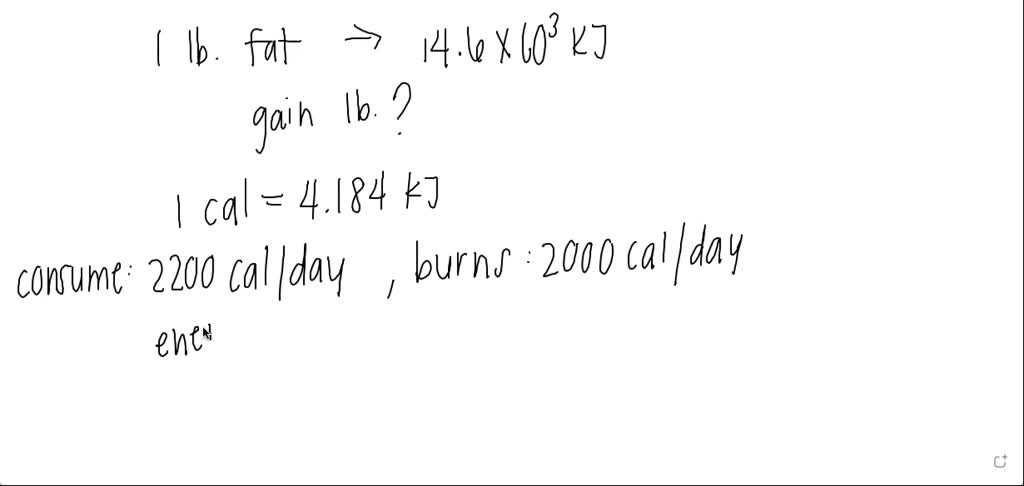 1 lb. fat ⇒ 14.6 × 60³ KJ
gain 1b.?
1 cal = 4.184 KJ
consume: 2200 cal/day , burns : 2000 cal/day
ener